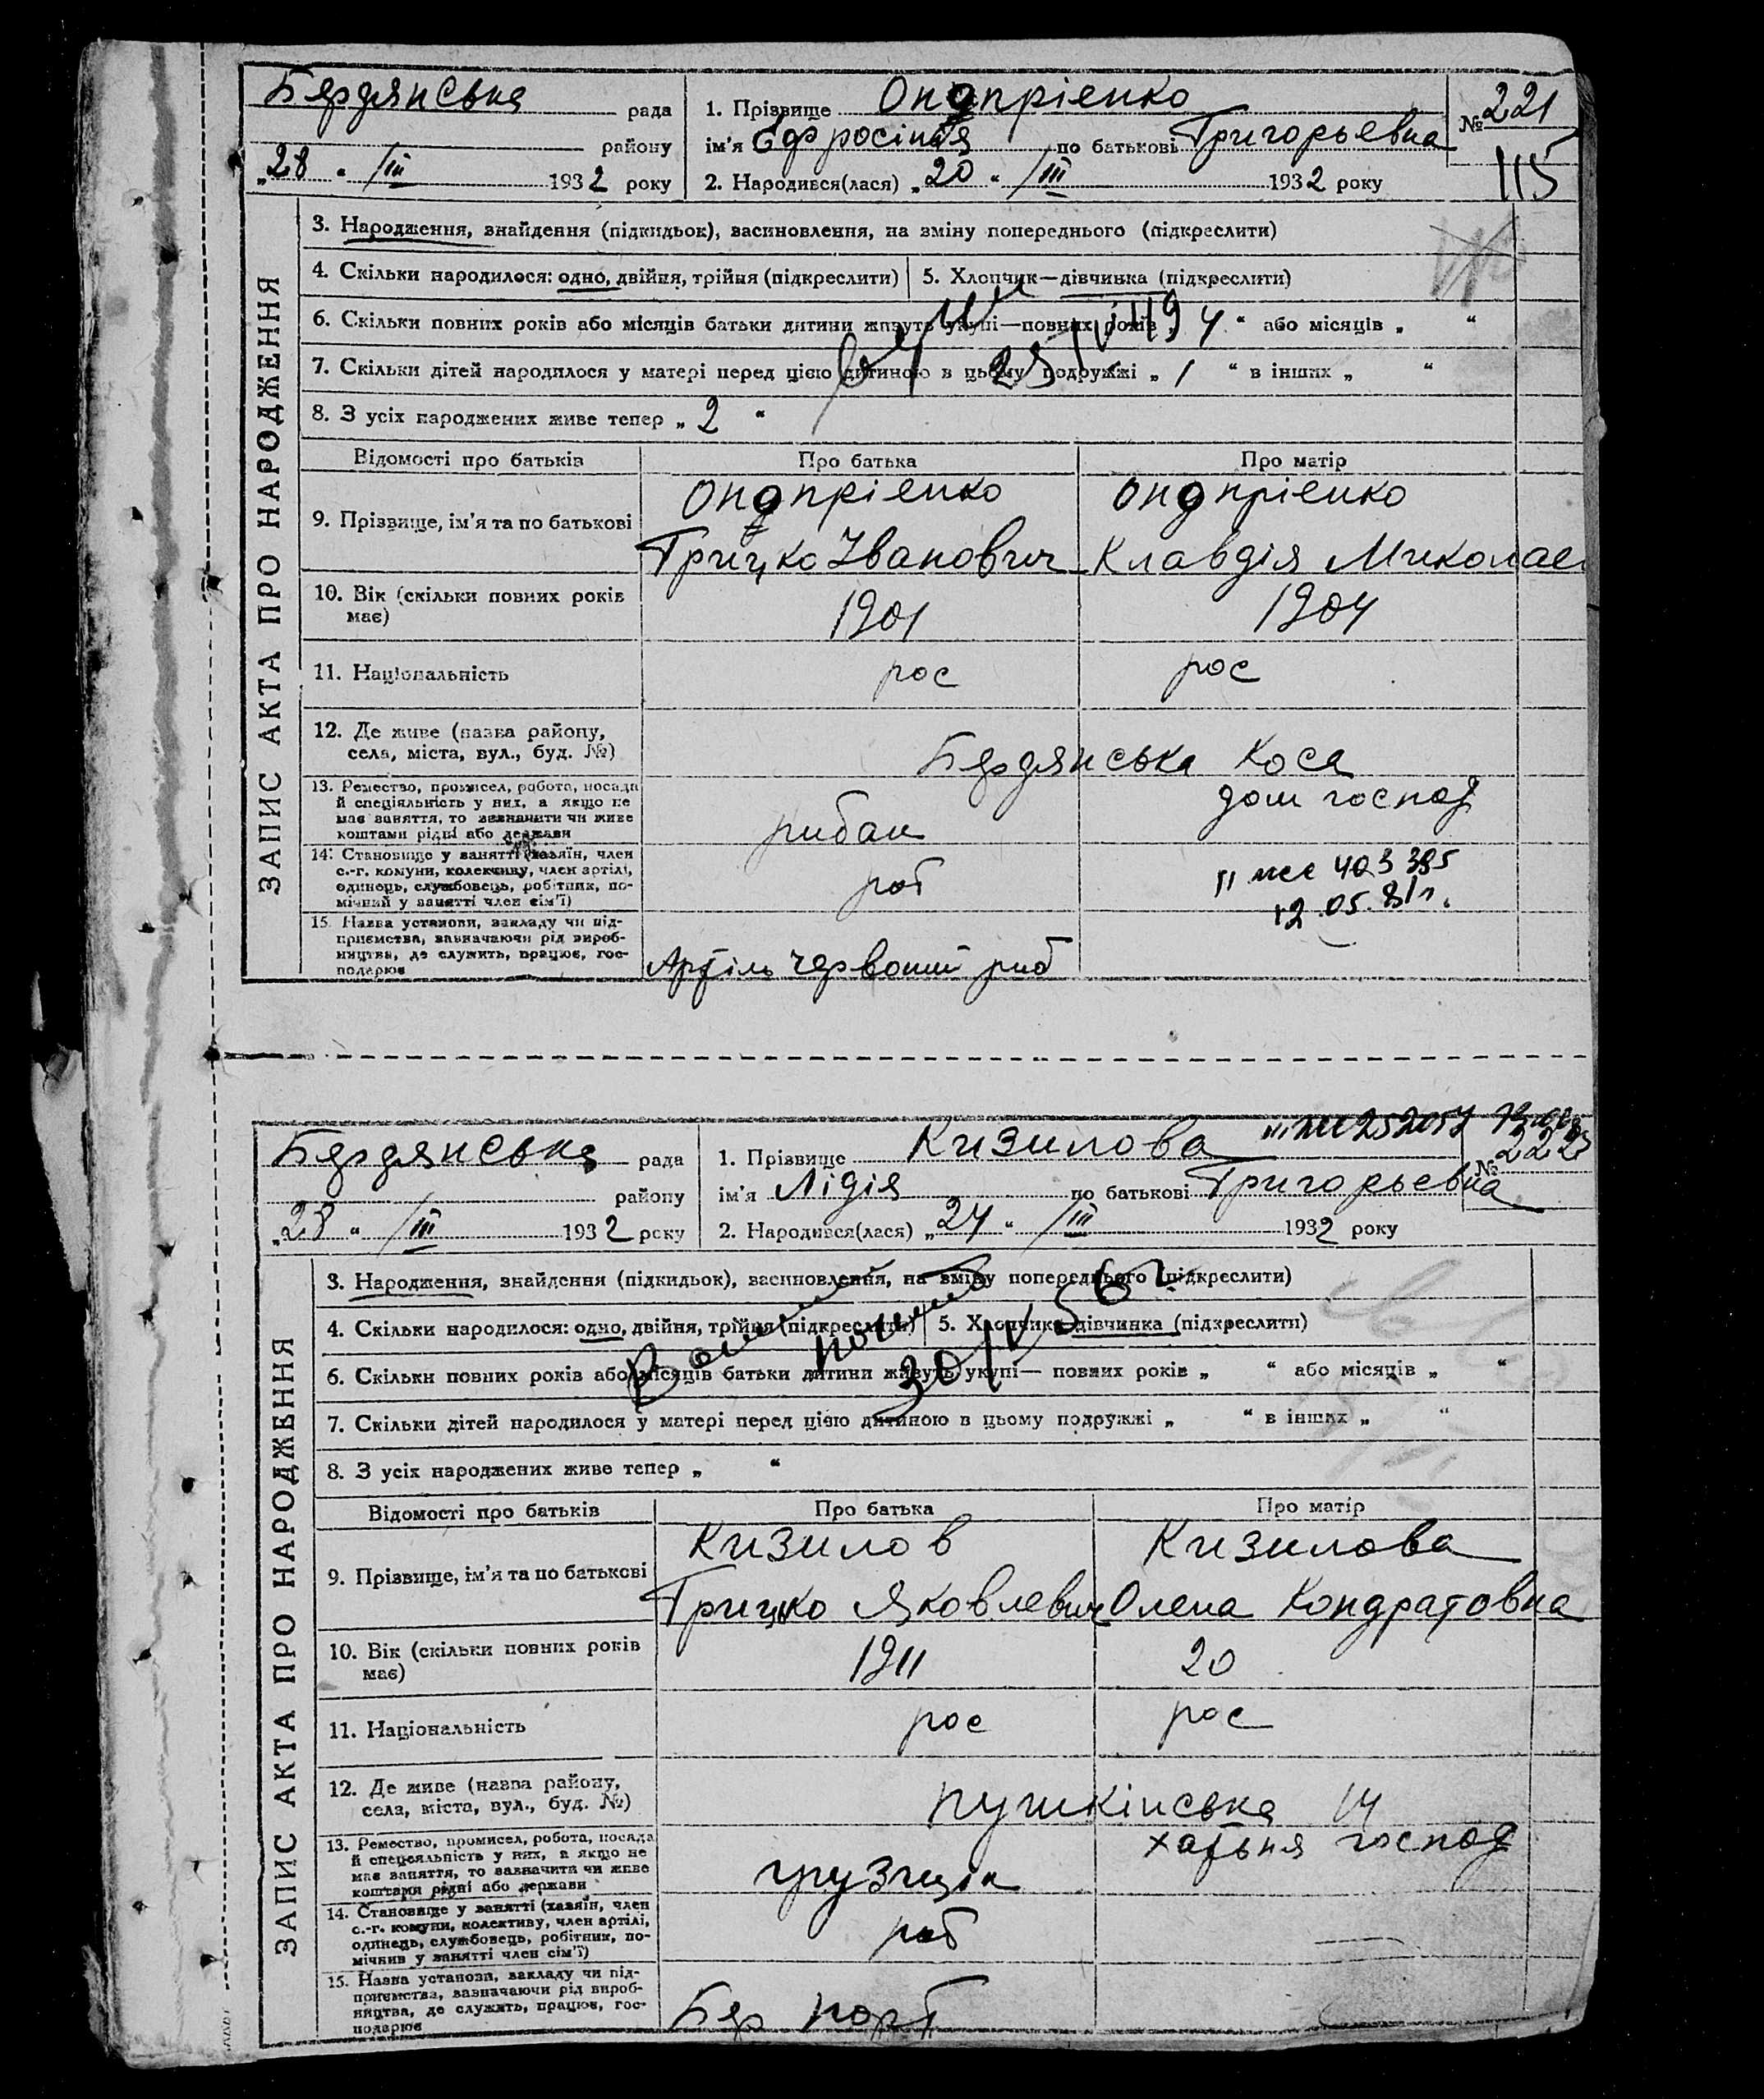 Бердянська рада
району
„28 “ /III 1932 року
1. Прізвище Онопріенко
ім’я Єфросінія по батькові Григорьевна
2. Народився(лася) „20 “ /III 1932 року
№ 221
115
ЗАПИС АКТА ПРО НАРОДЖЕННЯ
3. Народження, знайдення (підкидьок), васиновлення, на зміну попереднього (підкреслити)
4. Скільки народилося: одно, двійня, трійня (підкреслити)
5. Хлопчик—дівчинка (підкреслити)
6. Скільки повних років або місяців батьки дитини живуть укупі—повних років „ 4 “ або місяців „ “
7. Скільки дітей народилося у матері перед цією дитиною в цьому подружжі „ 1 “ в інших „ “
8. З усіх народжених живе тепер „ 2 “
Відомості про батьків
Про батька
Про матір
9. Прізвище, ім’я та по батькові
Онопріенко
Грицко Іванович
Онопріенко
Клавдія Миколаев
10. Вік (скільки повних років
має)
1901
1904
11. Національність
рос
рос
12. Де живе (назва району,
села, міста, вул., буд. №)
Бердянська Коса
13. Ремество, промисел, робота, посада
й спеціяльність у них, а якщо не
має заняття, то зазначити чи живе
коштами рідні або держави
рибак
дом господ
14. Становище у занятті (хазяїн, член
с.-г. комуни, колективу, член артілі,
одинець, службовець, робітник, по-
мічний у занятті член сім’ї)
роб
403 395
12.05.81г.
15. Назва установи, закладу чи під-
приємства, вазначаючи рід вироб-
ництва, де служить, працює, гос-
подарює
Артіль червоний риб
Бердянська рада
району
„28 “ /III 1932 року
1. Прізвище Кизилова
ім’я Лідія по батькові Григорьевна
2. Народився(лася) „24 “ /III 1932 року
№ 222
ЗАПИС АКТА ПРО НАРОДЖЕННЯ
3. Народження, знайдення (підкидьок), васиновлення, на зміну попереднього (підкреслити)
4. Скільки народилося: одно, двійня, трійня (підкреслити)
5. Хлопчик—дівчинка (підкреслити)
6. Скільки повних років або місяців батьки дитини живуть укупі— повних років „ “ або місяців „ “
7. Скільки дітей народилося у матері перед цією дитиною в цьому подружжі „ “ в інших „ “
8. З усіх народжених живе тепер „ “
Відомості про батьків
Про батька
Про матір
9. Прізвище, ім’я та по батькові
Кизилов
Грицько Яковлевич
Кизилова
Олена Кондратовна
10. Вік (скільки повних років
має)
1911
20
11. Національність
рос
рос
12. Де живе (назва району,
села, міста, вул., буд. №)
Пушкінська 14
13. Ремество, промисел, робота, посада
й спецеяльність у них, а якщо не
має заняття, то вазначити чи живе
коштами рідні або держави
грузчик
хатьня господ
14. Становище у занятті (хазяїн, член
с.-г. комуни, колективу, член артілі,
одинець, службовець, робітник, по-
мічник у занятті член сім’ї)
роб
15. Назва установи, закладу чи під-
приємства, вазначаючи рід вироб-
ництва, де служить, працює, гос-
подарює
Бер порт